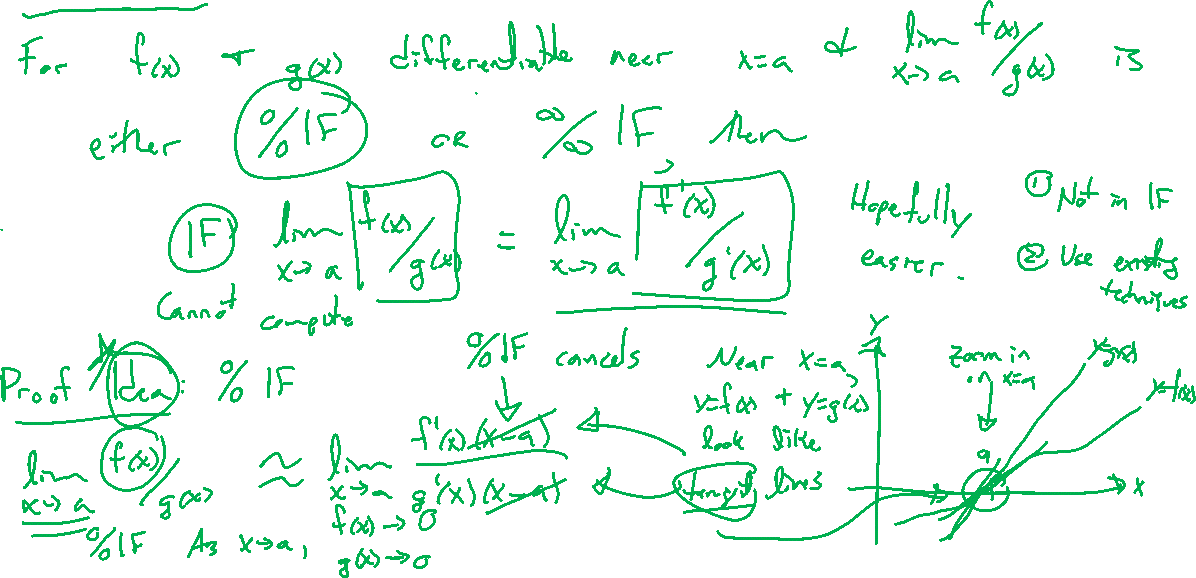 For f(x) + g(x) differentiable near x=a & lim x→a f(x)/g(x) is
either 0/0 IF or ∞/∞ IF, then
IF lim x→a f(x)/g(x) = lim x→a f'(x)/g'(x)
Cannot compute
Hopefully easier.
① Not in IF
② Use existing techniques
Proof Idea: 0/0 IF
lim x→a f(x)/g(x) ≈ lim x→a f'(x)(x-a)/g'(x)(x-a)
0/0 IF cancels
0/0 IF As x→a, f(x)→0
g(x)→0
Near x=a,
y=f(x) + y=g(x)
look like
tangent lines
Y
Zoom in
on x=a
y=g(x)
y=f(x)
a
x